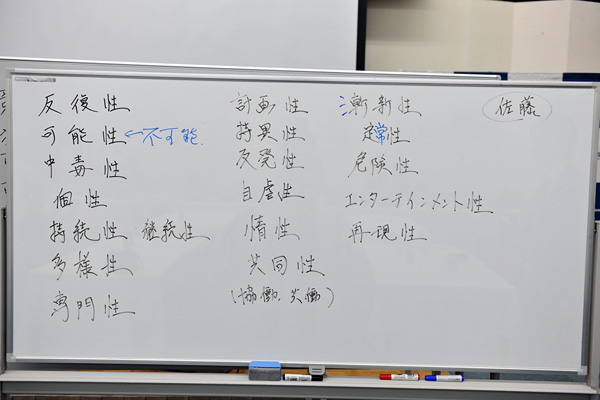 反復性
可能性 ←不可能
中毒性
個性
持続性 継続性
多様性
専門性
計画性
特異性
反発性
自虐性
惰性
共同性
(協働、共働)
斬新性
定常性
危険性
エンターテインメント性
再現性
佐藤